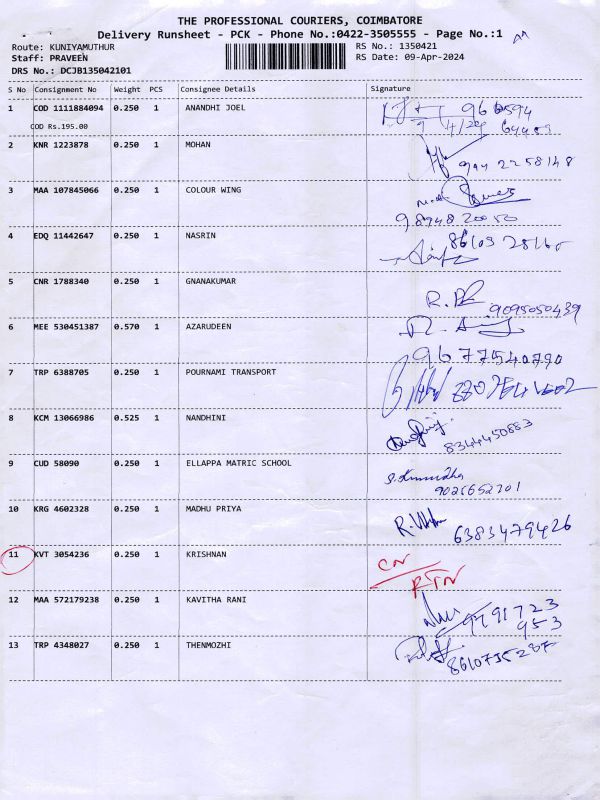 THE PROFESSIONAL COURIERS, COIMBATORE
Delivery Runsheet - PCK - Phone No.:0422-3505555 - Page No.:1
Route: KUNIYAMUTHUR
RS No.: 1350421
Staff: PRAVEEN
RS Date: 09-Apr-2024
DRS No.: DCJB135042101
S No Consignment No Weight PCS Consignee Details Signature
1 COD 1111884094 0.250 1 ANANDHI JOEL
COD Rs.195.00
2 KNR 1223878 0.250 1 MOHAN
9942258148
3 MAA 107845066 0.250 1 COLOUR WING
9894820050
4 EDQ 11442647 0.250 1 NASRIN
5 CNR 1788340 0.250 1 GNANAKUMAR
9095050439
6 MEE 530451387 0.570 1 AZARUDEEN
9677540790
7 TRP 6388705 0.250 1 POURNAMI TRANSPORT
8 KCM 13066986 0.525 1 NANDHINI
8344450883
9 CUD 58090 0.250 1 ELLAPPA MATRIC SCHOOL
10 KRG 4602328 0.250 1 MADHU PRIYA
6383479426
11 KVT 3054236 0.250 1 KRISHNAN
CN
RTN
12 MAA 572179238 0.250 1 KAVITHA RANI
9791723
953
13 TRP 4348027 0.250 1 THENMOZHI
8610735287